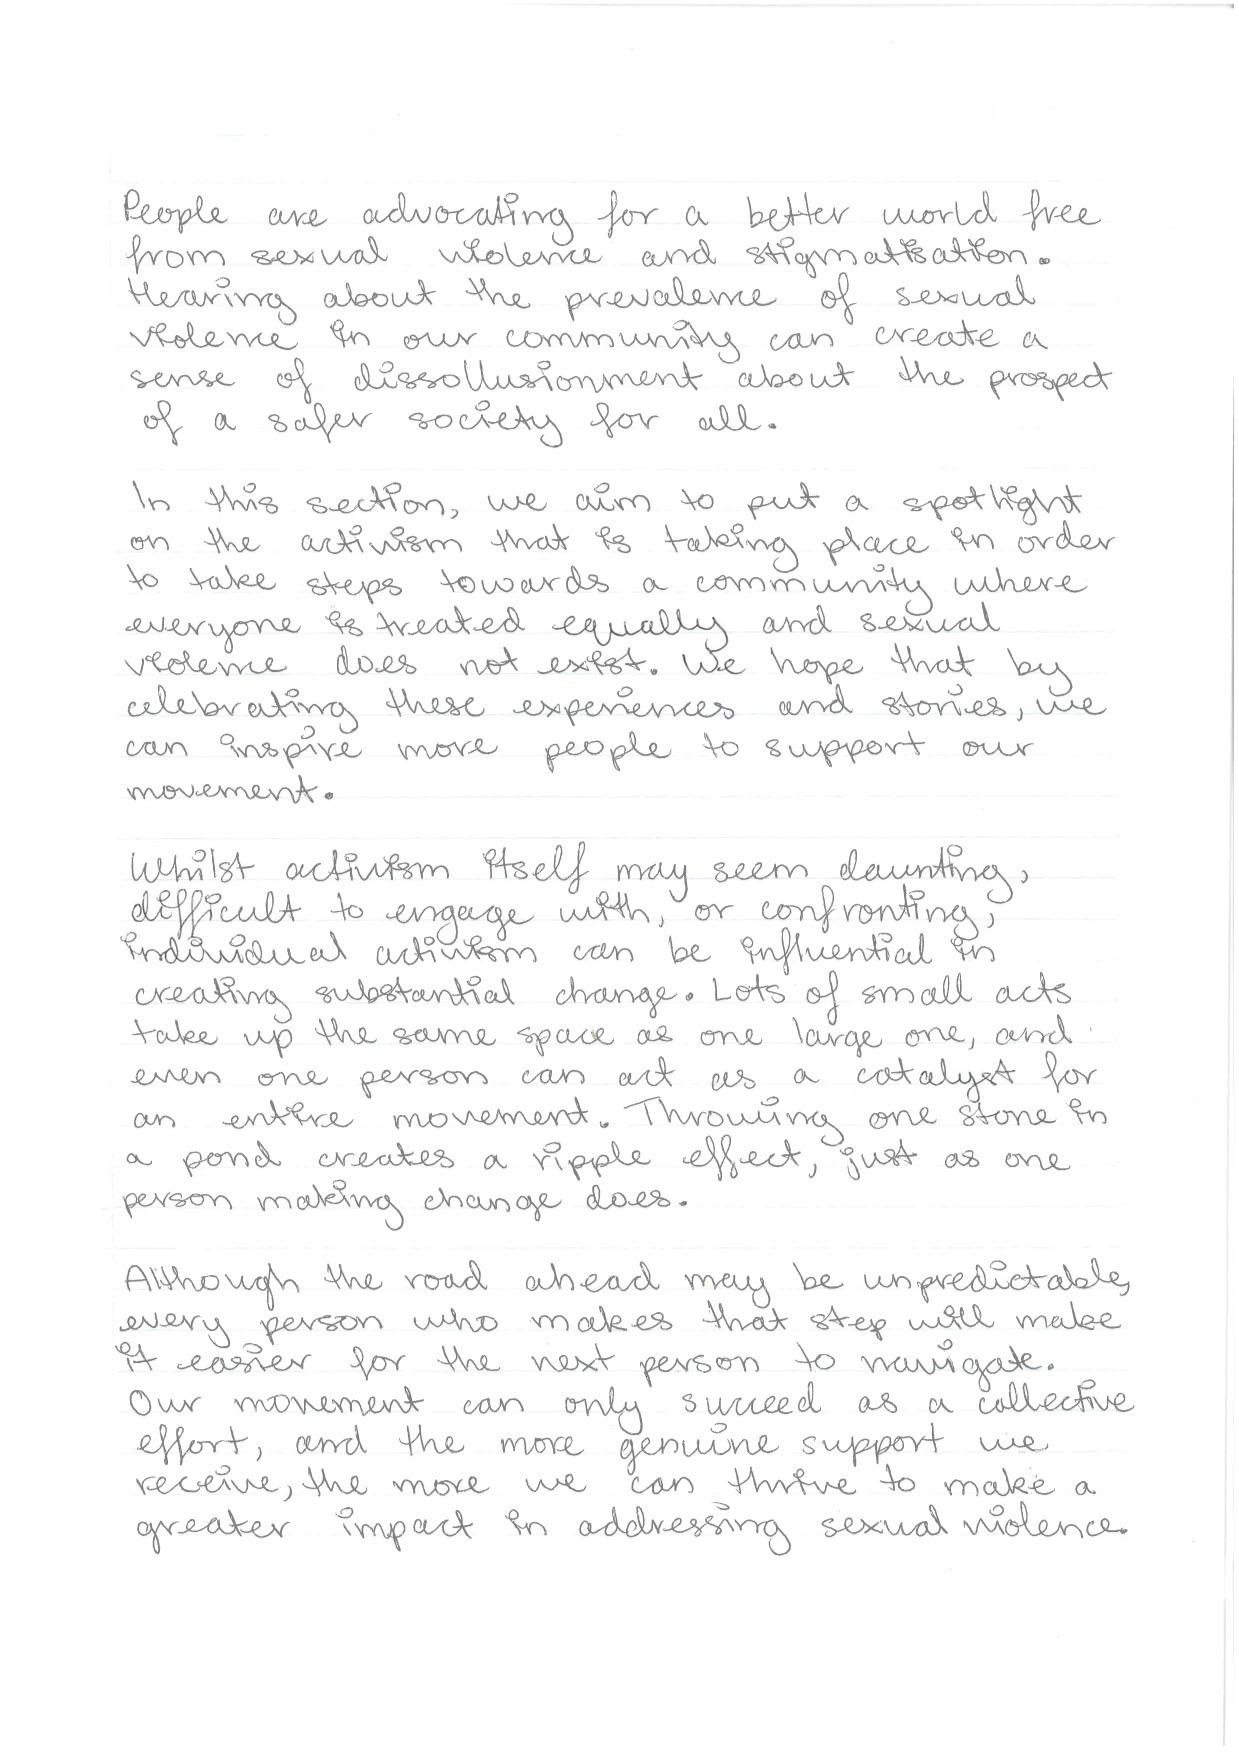 People are advocating for a better world free
from sexual violence and stigmatisation.
Hearing about the prevalence of sexual
violence in our community can create a
sense of dissollusionment about the prospect
of a safer society for all.
In this section, we aim to put a spotlight
on the activism that is taking place in order
to take steps towards a community where
everyone is treated equally and sexual
violence does not exist. We hope that by
celebrating these experiences and stories, we
can inspire more people to support our
movement.
Whilst activism itself may seem daunting,
difficult to engage with, or confronting,
individual activism can be influential in
creating substantial change. Lots of small acts
take up the same space as one large one, and
even one person can act as a catalyst for
an entire movement. Throwing one stone in
a pond creates a ripple effect, just as one
person making change does.
Although the road ahead may be unpredictable,
every person who makes that step will make
it easier for the next person to navigate.
Our movement can only succeed as a collective
effort, and the more genuine support we
receive, the more we can thrive to make a
greater impact in addressing sexual violence.